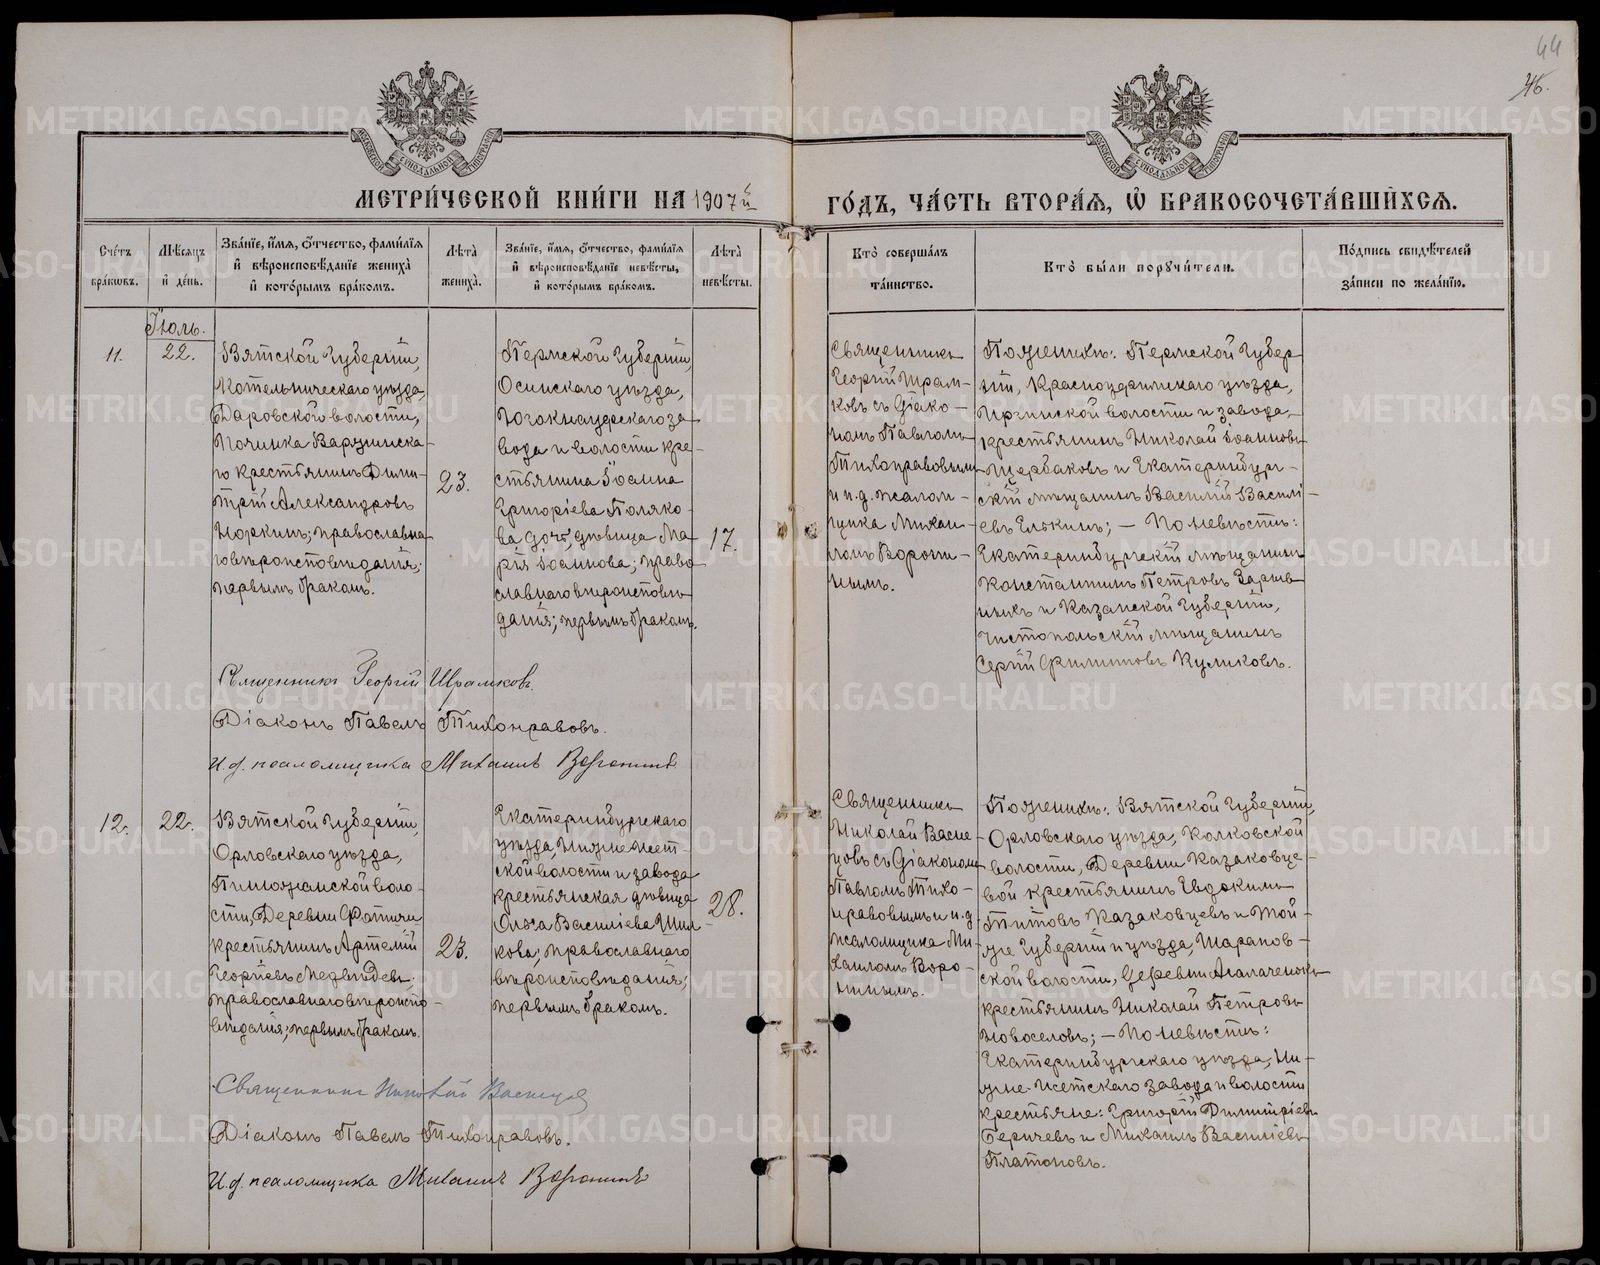 44
46.
МЕТРИ́ЧЕСКОЙ КНИ́ГИ НА 1907й
ГО́ДЪ, ЧА́СТЬ ВТОРА́Я, Ѡ БРАКОСОЧЕТА́ВШИХСЯ.
Сче́тъ бра́кѡвъ.
Мѣ́сѧцъ и де́нь.
Зва́нїе, и́мѧ, ѻ́тчество, фами́лїѧ
и вѣроисповѣ́данїе жениха̀
и кото́рымъ бра́комъ.
Лѣта̀ жениха̀.
Зва́нїе, и́мѧ, ѻ́тчество, фами́лїѧ
и вѣроисповѣ́данїе невѣ́сты,
и кото́рымъ бра́комъ.
Лѣта̀ невѣ́сты.
Кто̀ соверша́лъ
та́инство.
Кто̀ бы́ли поручи́тели.
По́дпись свидѣ́телей
за́писи по жела́нїю.
Іюль.
11.
22.
Вятской Губерніи,
Котельническаго уѣзда,
Даровской волости,
Починка Варушинска-
го крестьянинъ Дими-
трій Александровъ
Норкинъ; православна-
го вѣроисповѣданія;
первымъ бракомъ.
23.
Пермской Губерніи,
Осинскаго уѣзда,
Югокнауфскаго за-
вода и волости кре-
стьянина Іоанна
Григоріева Поляко-
ва дочь, дѣвица Ма-
рія Іоаннова; право-
славнаго вѣроисповѣ-
данія; первымъ бракомъ.
17.
Священникъ
Георгій Шрам-
ковъ съ Діако-
номъ Павломъ
Тихонравовымъ
и и.д. псалом-
щика Михаи-
ломъ Ворони-
нымъ.
По женихѣ: Пермской Губер-
ніи, Красноуфимскаго уѣзда,
Иргинской волости и завода,
крестьянинъ Николай Іоанновъ
Щербаковъ и Екатеринбург-
скій мѣщанинъ Василій Василі-
евъ Елькинъ; — По невѣстѣ:
Екатеринбургскій мѣщанинъ
Константинъ Петровъ
и Казанской Губерніи,
Чистопольскій мѣщанинъ
Сергій Филипповъ Куликовъ.
Священникъ Георгій Шрамковъ.
Діаконъ Павелъ Тихонравовъ.
И.д. псаломщика Михаилъ Воронинъ
12.
22.
Вятской Губерніи,
Орловскаго уѣзда,
Пишнурской воло-
сти, Деревни Фотичи
крестьянинъ Артемій
Георгіевъ Медвѣдевъ;
православнаго вѣроиспо-
вѣданія; первымъ бракомъ.
23.
Екатеринбургскаго
уѣзда, Нижне-Исет-
ской волости и завода
крестьянская дѣвица
Ольга Васильева Шил-
кова; православнаго
вѣроисповѣданія;
первымъ бракомъ.
28.
Священникъ
Николай Васне-
цовъ съ Діакономъ
Павломъ Тихо-
нравовымъ и и.д.
псаломщика Ми-
хаиломъ Воро-
нинымъ.
По женихѣ: Вятской Губерніи,
Орловскаго уѣзда, Колковской
волости, Деревни Казаковце-
вой крестьянинъ Евдокимъ
Титовъ Казаковцевъ и той-
же Губерніи и уѣзда, Шаранов-
ской волости, деревни Агалаченокъ
крестьянинъ Николай Петровъ
Новоселовъ; — По невѣстѣ:
Екатеринбургскаго уѣзда, Ни-
жне-Исетскаго завода и волости
крестьяне: Григорій Димитріевъ
Беричевъ и Михаилъ Василіевъ
Платоновъ.
Священникъ Николай Васнецовъ
Діаконъ Павелъ Тихонравовъ.
И.д. псаломщика Михаилъ Воронинъ
METRIKI.GASO-URAL.RU